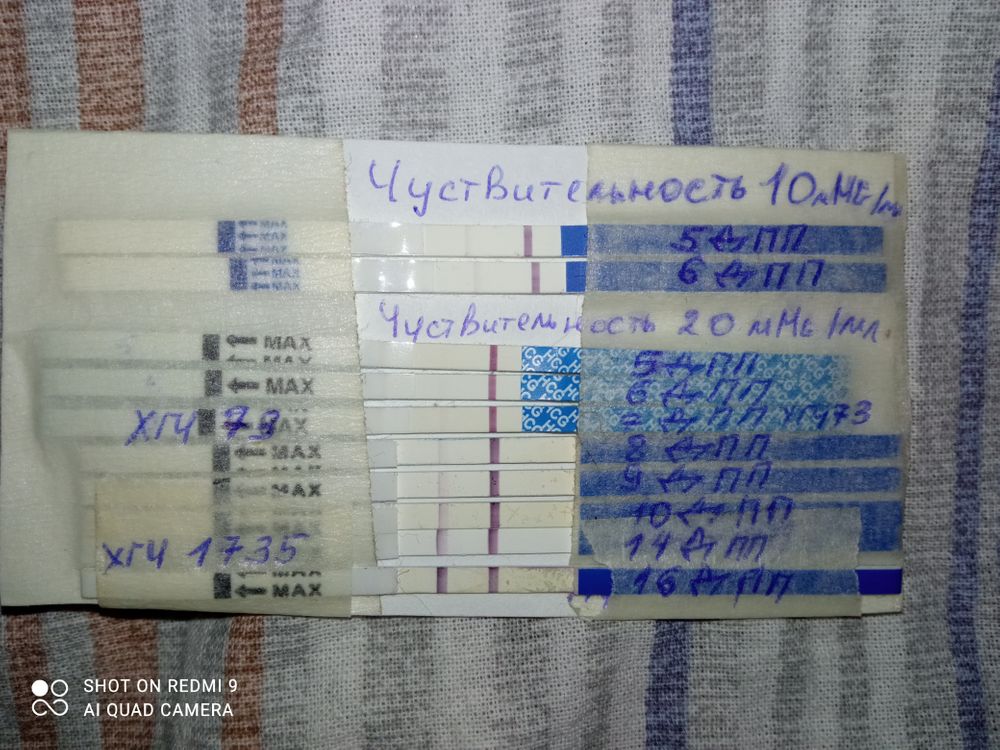 Чуствительность 10 мМЕ/мл
MAX
MAX
MAX
5 ДПП
MAX
MAX
MAX
6 ДПП
Чуствительность 20 мМЕ/мл.
MAX
5 ДПП
MAX
6 ДПП
ХГЧ 79
MAX
7 ДПП ХГЧ 73
MAX
8 ДПП
MAX
9 ДПП
10 ДПП
ХГЧ 1735
14 ДПП
MAX
16 ДПП
SHOT ON REDMI 9
AI QUAD CAMERA